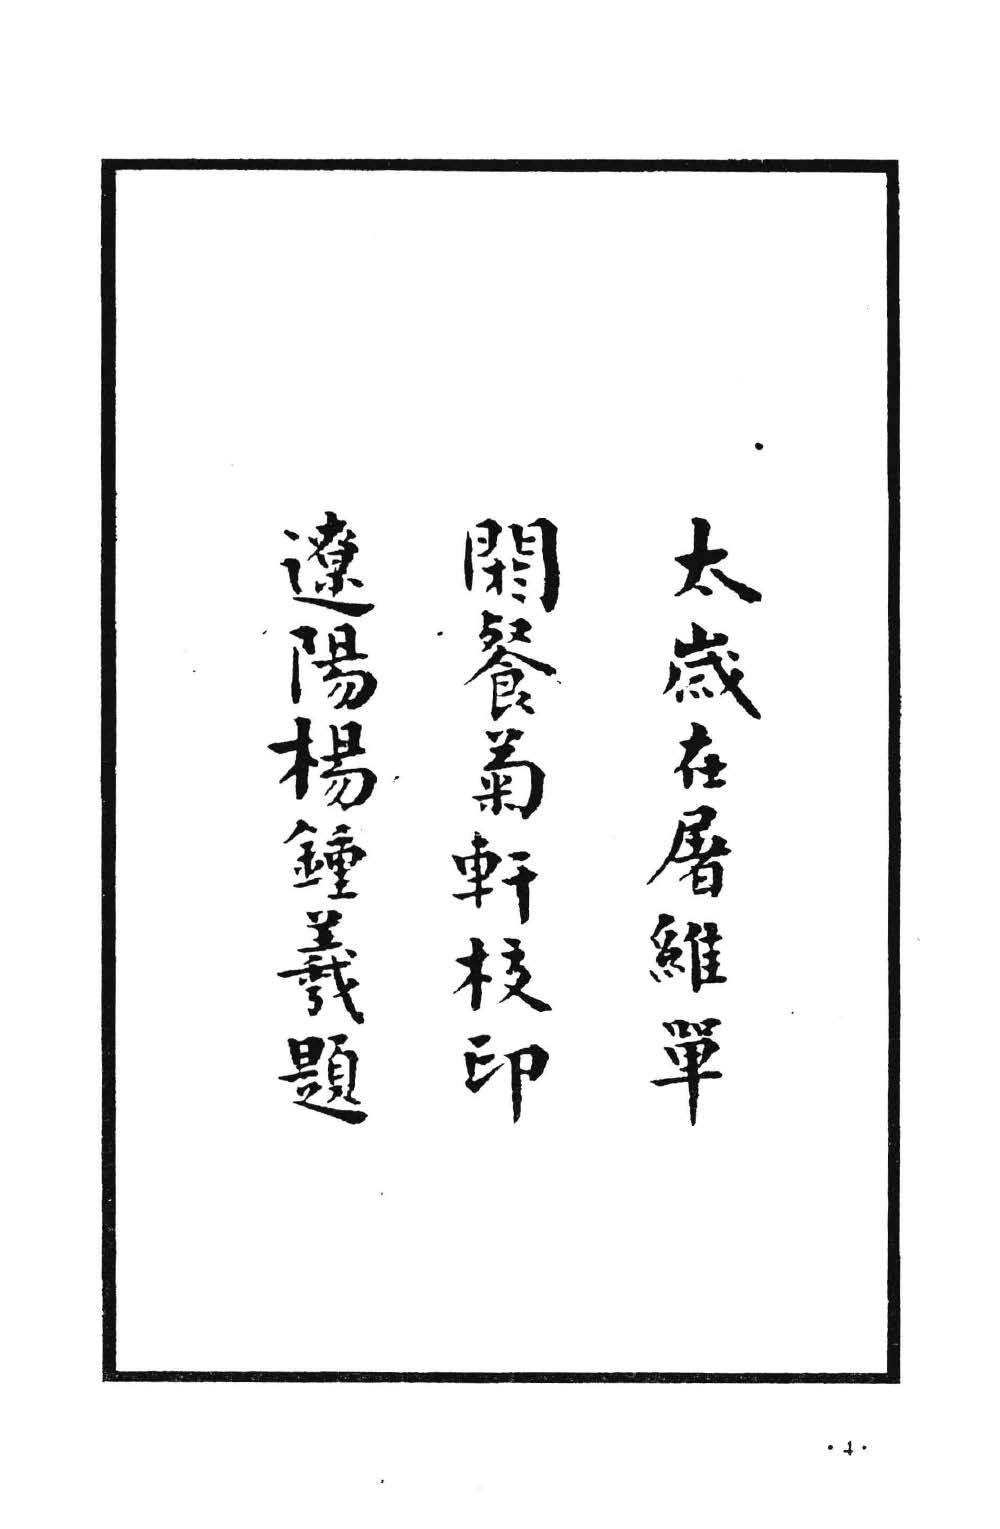 太歲在屠維單
閼餐菊軒校印
遼陽楊鍾羲題
·4·